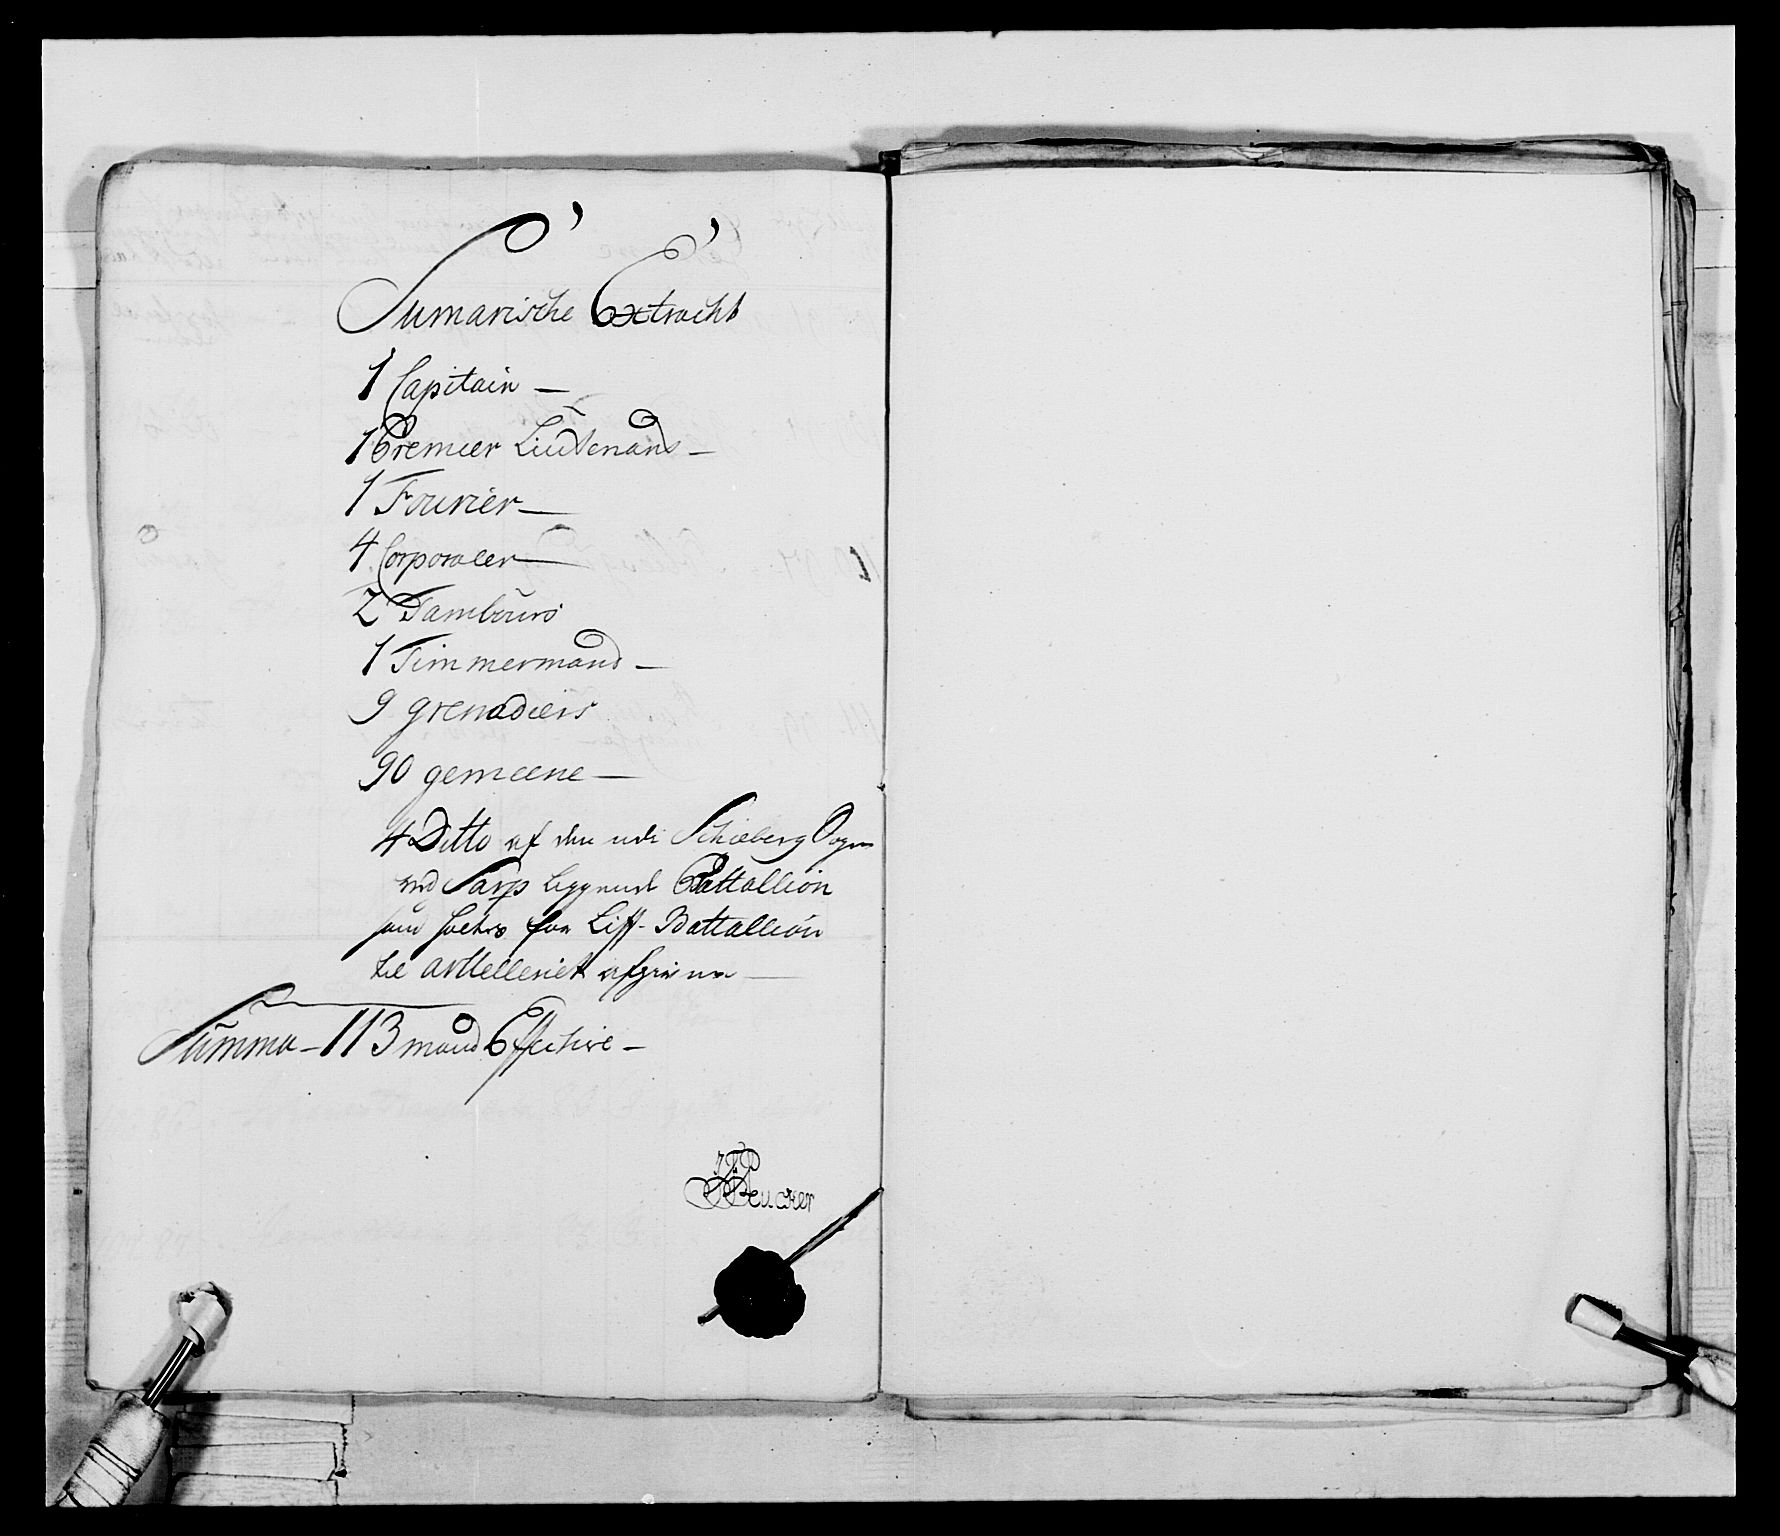 Sumarische Extracht
1 Capitain —
1 Premeer Lieutenand —
1 Fourier —
4 Corporaler —
2 Tambours
1 Timmermand —
9 grenadiers
90 gemeene —
4 Ditto af den udi Schieberg Sogn
ved Sarp liggende Battallion
som for Liff - Battallion
til artelleriet
Summa — 113 mand Effective —
Beucker